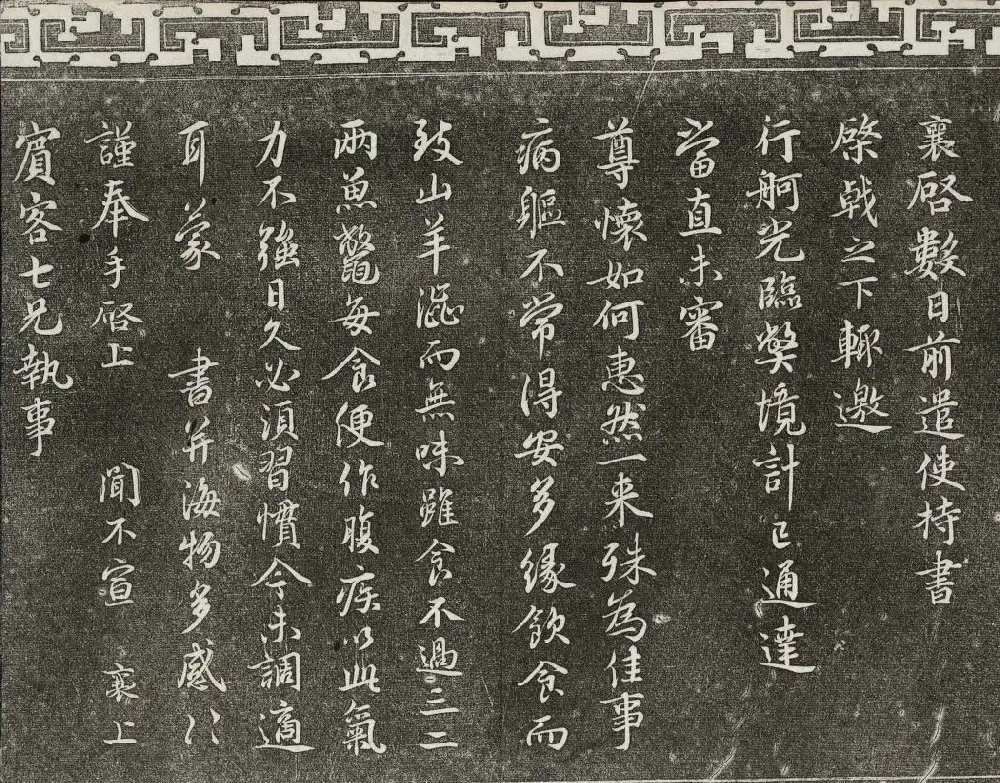 襄啓數日前遣使持書
棨戟之下輙邀
行舸光臨弊境計已通達
當直未審
尊懷如何惠然一来殊為佳事
病軀不常得安多緣飲食而
致山羊澁而無味雖食不過三二
兩魚鼈每食便作腹疾以此氣
力不強日久必須習慣今未調適
耳蒙 書并海物多感〻
謹奉手啓上 聞不宣 襄上
賔客七兄執事